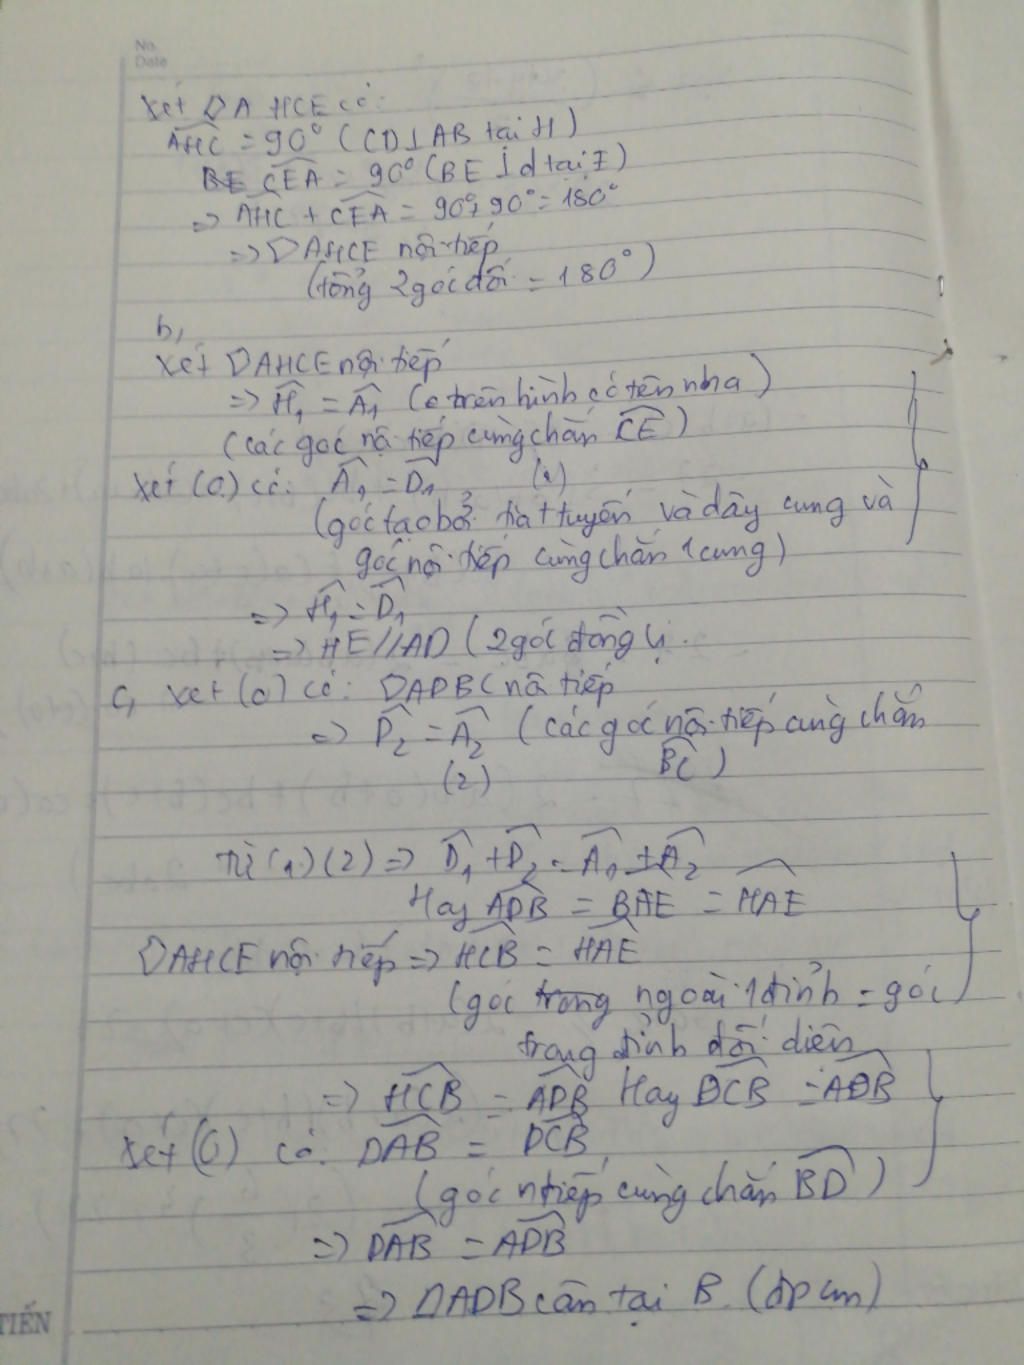 No.
Date
Xét ▱AHCE có:
AHC = 90° (CD⊥AB tại H)
CEA = 90° (BE ⊥ d tại E)
=> AHC + CEA = 90°+90° = 180°
=> ▱AHCE nội tiếp
(tổng 2 góc đối = 180°)
b,
Xét ▱AHCE nội tiếp
=> H₁ = A₁ (e trên hình có tên nha)
(các góc nội tiếp cùng chắn CE)
Xét (O) có: A₁ = D₁ (1)
(góc tạo bởi tia t tuyến và dây cung và
góc nội tiếp cùng chắn 1 cung)
=> H₁ = D₁
=> HE//AD (2 góc đồng vị.
c, xét (O) có: ▱ADBC nội tiếp
=> D₂ = A₂ (các góc nội tiếp cùng chắn
(2) BC)
Từ (1)(2) => D₁ + D₂ = A₁ + A₂
Hay ADB = BAE = HAE
▱AHCE nội tiếp => HCB = HAE
(góc ngoài 1 đỉnh = góc
trong đỉnh đối diện
=> HCB = ADB Hay DCB = ADB
Xét (O) có: DAB = DCB
(góc ntiếp cùng chắn BD)
=> DAB = ADB
=> ΔADB cân tại B. (đpcm)
TIẾN